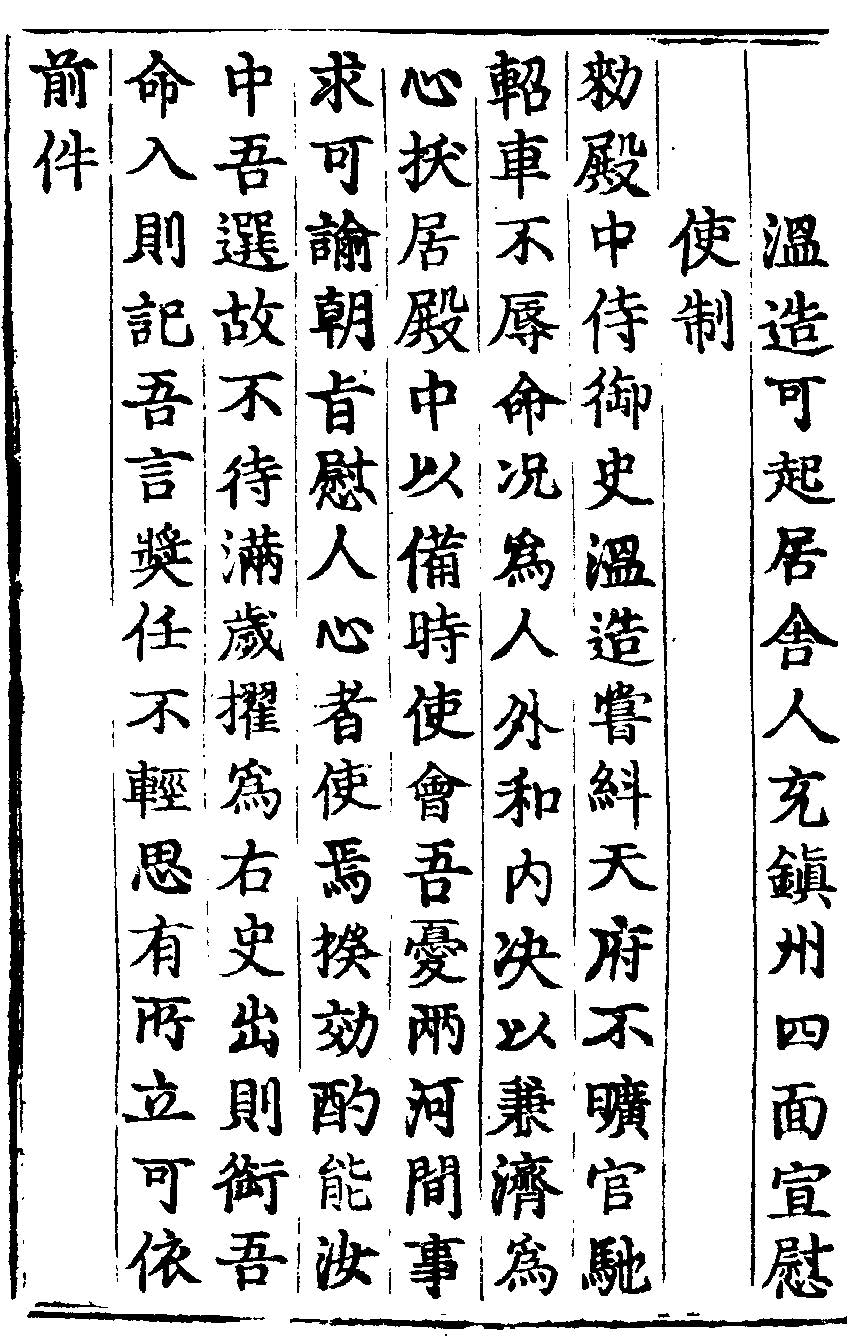 溫造可起居舎人充鎮州四面宣慰
使制
勑殿中侍御史溫造嘗糾天府不曠官馳
軺車不辱命况爲人外和内决以兼濟爲
心扶居殿中以備時使會吾憂兩河間事
求可諭朝旨慰人心者使焉揆効酌能汝
中吾選故不待滿歲擢爲右史出則銜吾
命入則記吾言奬任不輕思有所立可依
前件